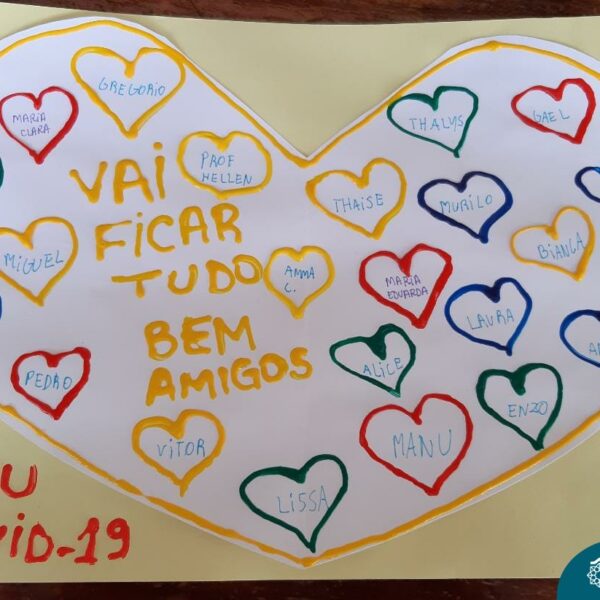 GREGORIO
MARIA
CLARA
PROF
HELLEN
VAI
FICAR
TUDO
BEM
AMIGOS
MIGUEL
AMMA
C.
PEDRO
VITOR
LISSA
THALYS
GAEL
THAISE
MURILO
BIANCA
MARIA
EDUARDA
LAURA
ALICE
ENZO
MANU